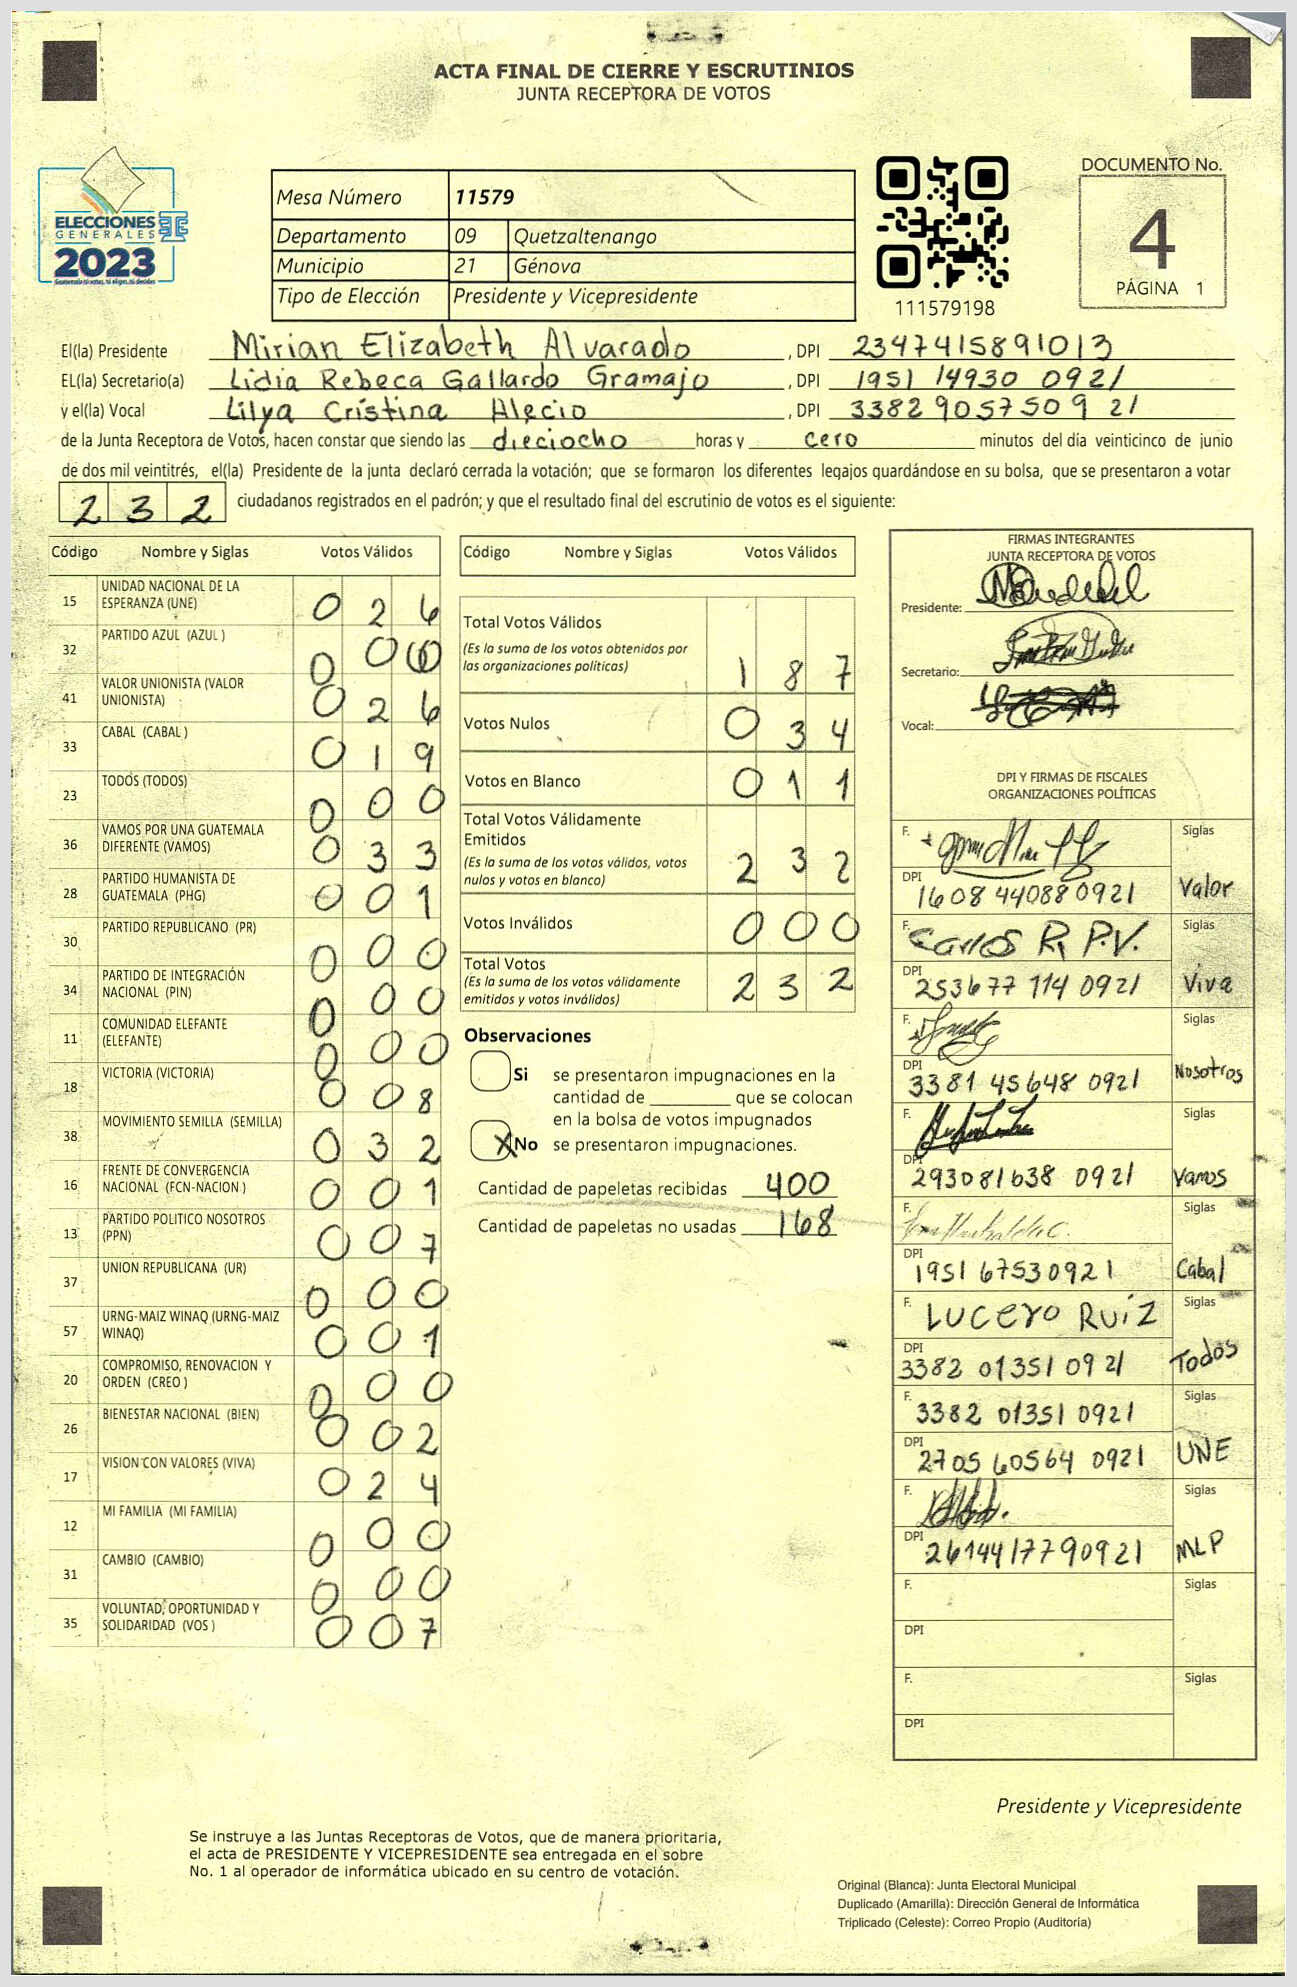 ACTA FINAL DE CIERRE Y ESCRUTINIOS
JUNTA RECEPTORA DE VOTOS
ELECCIONES
GENERALES
2023
Mesa Número 11579
Departamento 09 Quetzaltenango
Municipio 21 Génova
Tipo de Elección Presidente y Vicepresidente
111579198
DOCUMENTO No.
4
PÁGINA 1
El(la) Presidente Mirian Elizabeth Alvarado , DPI 2347415891013
EL(la) Secretario(a) Lidia Rebeca Gallardo Gramajo , DPI 1951 14930 0921
y el(la) Vocal Lilya Cristina Alecio , DPI 3382905750921
de la Junta Receptora de Votos, hacen constar que siendo las dieciocho horas y cero minutos del día veinticinco de junio
de dos mil veintitrés, el(la) Presidente de la junta declaró cerrada la votación; que se formaron los diferentes legajos guardándose en su bolsa, que se presentaron a votar
232 ciudadanos registrados en el padrón; y que el resultado final del escrutinio de votos es el siguiente:
Código Nombre y Siglas Votos Válidos
15 UNIDAD NACIONAL DE LA ESPERANZA (UNE) 0 2 6
32 PARTIDO AZUL (AZUL ) 0 0 0
41 VALOR UNIONISTA (VALOR UNIONISTA) 0 2 6
33 CABAL (CABAL ) 0 1 9
23 TODOS (TODOS) 0 0 0
36 VAMOS POR UNA GUATEMALA DIFERENTE (VAMOS) 0 3 3
28 PARTIDO HUMANISTA DE GUATEMALA (PHG) 0 0 1
30 PARTIDO REPUBLICANO (PR) 0 0 0
34 PARTIDO DE INTEGRACIÓN NACIONAL (PIN) 0 0 0
11 COMUNIDAD ELEFANTE (ELEFANTE) 0 0 0
18 VICTORIA (VICTORIA) 0 0 8
38 MOVIMIENTO SEMILLA (SEMILLA) 0 3 2
16 FRENTE DE CONVERGENCIA NACIONAL (FCN-NACION ) 0 0 1
13 PARTIDO POLITICO NOSOTROS (PPN) 0 0 7
37 UNION REPUBLICANA (UR) 0 0 0
57 URNG-MAIZ WINAQ (URNG-MAIZ WINAQ) 0 0 1
20 COMPROMISO, RENOVACION Y ORDEN (CREO ) 0 0 0
26 BIENESTAR NACIONAL (BIEN) 0 0 2
17 VISION CON VALORES (VIVA) 0 2 4
12 MI FAMILIA (MI FAMILIA) 0 0 0
31 CAMBIO (CAMBIO) 0 0 0
35 VOLUNTAD, OPORTUNIDAD Y SOLIDARIDAD (VOS ) 0 0 7
Código Nombre y Siglas Votos Válidos
Total Votos Válidos
(Es la suma de los votos obtenidos por
las organizaciones políticas) 1 8 7
Votos Nulos 0 3 4
Votos en Blanco 0 1 1
Total Votos Válidamente
Emitidos
(Es la suma de los votos válidos, votos
nulos y votos en blanco) 2 3 2
Votos Inválidos 0 0 0
Total Votos
(Es la suma de los votos válidamente
emitidos y votos inválidos) 2 3 2
Observaciones
Si se presentaron impugnaciones en la
cantidad de ________ que se colocan
en la bolsa de votos impugnados
X No se presentaron impugnaciones.
Cantidad de papeletas recibidas 400
Cantidad de papeletas no usadas 168
FIRMAS INTEGRANTES
JUNTA RECEPTORA DE VOTOS
Presidente:
Secretario:
Vocal:
DPI Y FIRMAS DE FISCALES
ORGANIZACIONES POLÍTICAS
F. Siglas
DPI 1608 44088 0921 Valor
F. Carlos R. P.V. Siglas
DPI 253677 114 0921 Viva
F. Siglas
DPI 3381 45648 0921 Nosotros
F. Siglas
DPI 293081638 0921 Vamos
F. Siglas
DPI 1951 67530921 Cabal
F. Lucero Ruiz Siglas
DPI 3382 01351 0921 Todos
F. 3382 01351 0921 Siglas
DPI 2705 60564 0921 UNE
F. Siglas
DPI 2614417790921 MLP
F. Siglas
DPI
F. Siglas
DPI
Presidente y Vicepresidente
Se instruye a las Juntas Receptoras de Votos, que de manera prioritaria,
el acta de PRESIDENTE Y VICEPRESIDENTE sea entregada en el sobre
No. 1 al operador de informática ubicado en su centro de votación.
Original (Blanca): Junta Electoral Municipal
Duplicado (Amarilla): Dirección General de Informática
Triplicado (Celeste): Correo Propio (Auditoría)